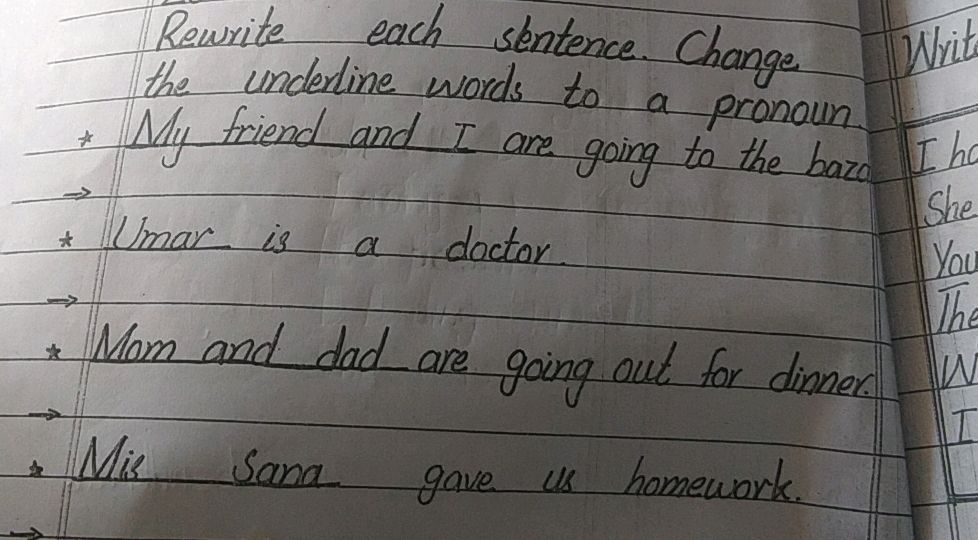 Rewrite each sentence. Change
the underline words to a pronoun.
* My friend and I are going to the baza
→
* Umar is a doctor.
→
* Mom and dad are going out for dinner.
→
* Mis Sana gave us homework.
→
Writ
I ha
She
You
The
W
I